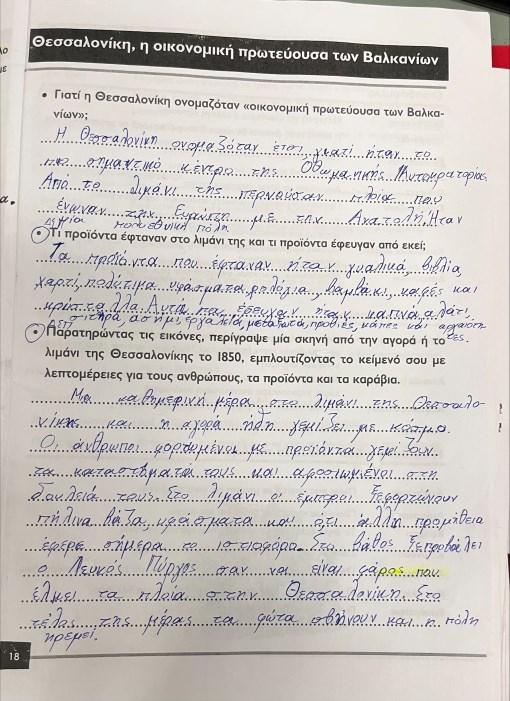 Θεσσαλονίκη, η οικονομική πρωτεύουσα των Βαλκανίων
• Γιατί η Θεσσαλονίκη ονομαζόταν «οικονομική πρωτεύουσα των Βαλκα-
νίων»;
Η Θεσσαλονίκη ονομαζόταν έτσι, γιατί ήταν το
πιο σημαντικό κέντρο της Οθωμανικής Αυτοκρατορίας.
Από το λιμάνι της περνούσαν πλοία που
ένωναν την Ευρώπη με την Ανατολή. Ήταν
πολυεθνική πόλη
• Τι προϊόντα έφταναν στο λιμάνι της και τι προϊόντα έφευγαν από εκεί;
Τα προϊόντα που έφταναν ήταν γυαλικά, βιβλία,
χαρτί, πολύτιμα υφάσματα, ρολόγια, βαμβάκι, καφές και
κρύσταλλα. Αυτά που έφευγαν ήταν καπνά, αλάτι,
σιτηρά, ασήμι, εργαλεία, μετάξωτα, προβιές, κάπες και
• Παρατηρώντας τις εικόνες, περίγραψε μία σκηνή από την αγορά ή το
λιμάνι της Θεσσαλονίκης το 1850, εμπλουτίζοντας το κείμενό σου με
λεπτομέρειες για τους ανθρώπους, τα προϊόντα και τα καράβια.
Μια καθημερινή μέρα στο λιμάνι της Θεσσαλο-
νίκης και η αγορά ήδη γεμίζει με κόσμο.
Οι άνθρωποι φορτωμένοι με προϊόντα γεμίζουν
τα καταστήματά τους και αφοσιωμένοι στη
δουλειά τους. Στο λιμάνι οι έμποροι ξεφορτώνουν
πήλινα βάζα, υφάσματα και ότι άλλη προμήθεια
έφερε σήμερα το ιστιοφόρο. Στο βάθος ξεπροβάλει
ο Λευκός Πύργος σαν να είναι φάρος που
έλκει τα πλοία στην Θεσσαλονίκη. Στο
τέλος της μέρας τα φώτα σβήνουν και η πόλη
ηρεμεί.
18